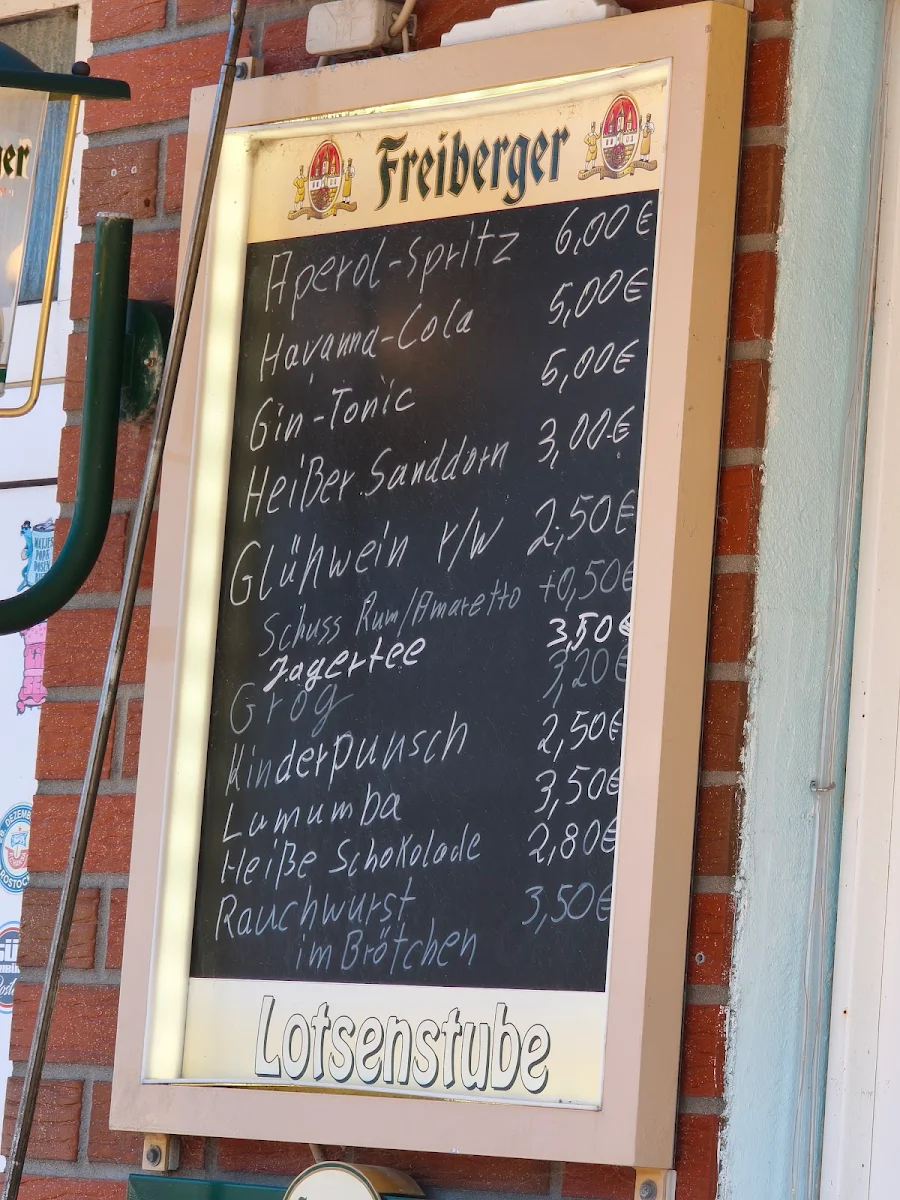 Freiberger
Aperol-Spritz 6,00€
Havanna-Cola 5,00€
Gin-Tonic 5,00€
Heißer Sanddorn 3,00€
Glühwein r/w 2,50€
Schuss Rum/Amaretto +0,50€
Jagertee 3,50€
Grog 3,20€
Kinderpunsch 2,50€
Lumumba 3,50€
Heiße Schokolade 2,80€
Rauchwurst 3,50€
im Brötchen
Lotsenstube